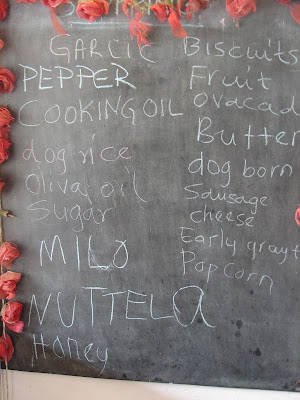 GARLIC
PEPPER
COOKING OIL
dog rice
Oliva oil
Sugar
MILO
NUTTELA
Honey
Biscuits
Fruit
ovacad
Butter
dog born
Sausage
cheese
Early grayt
Popcorn